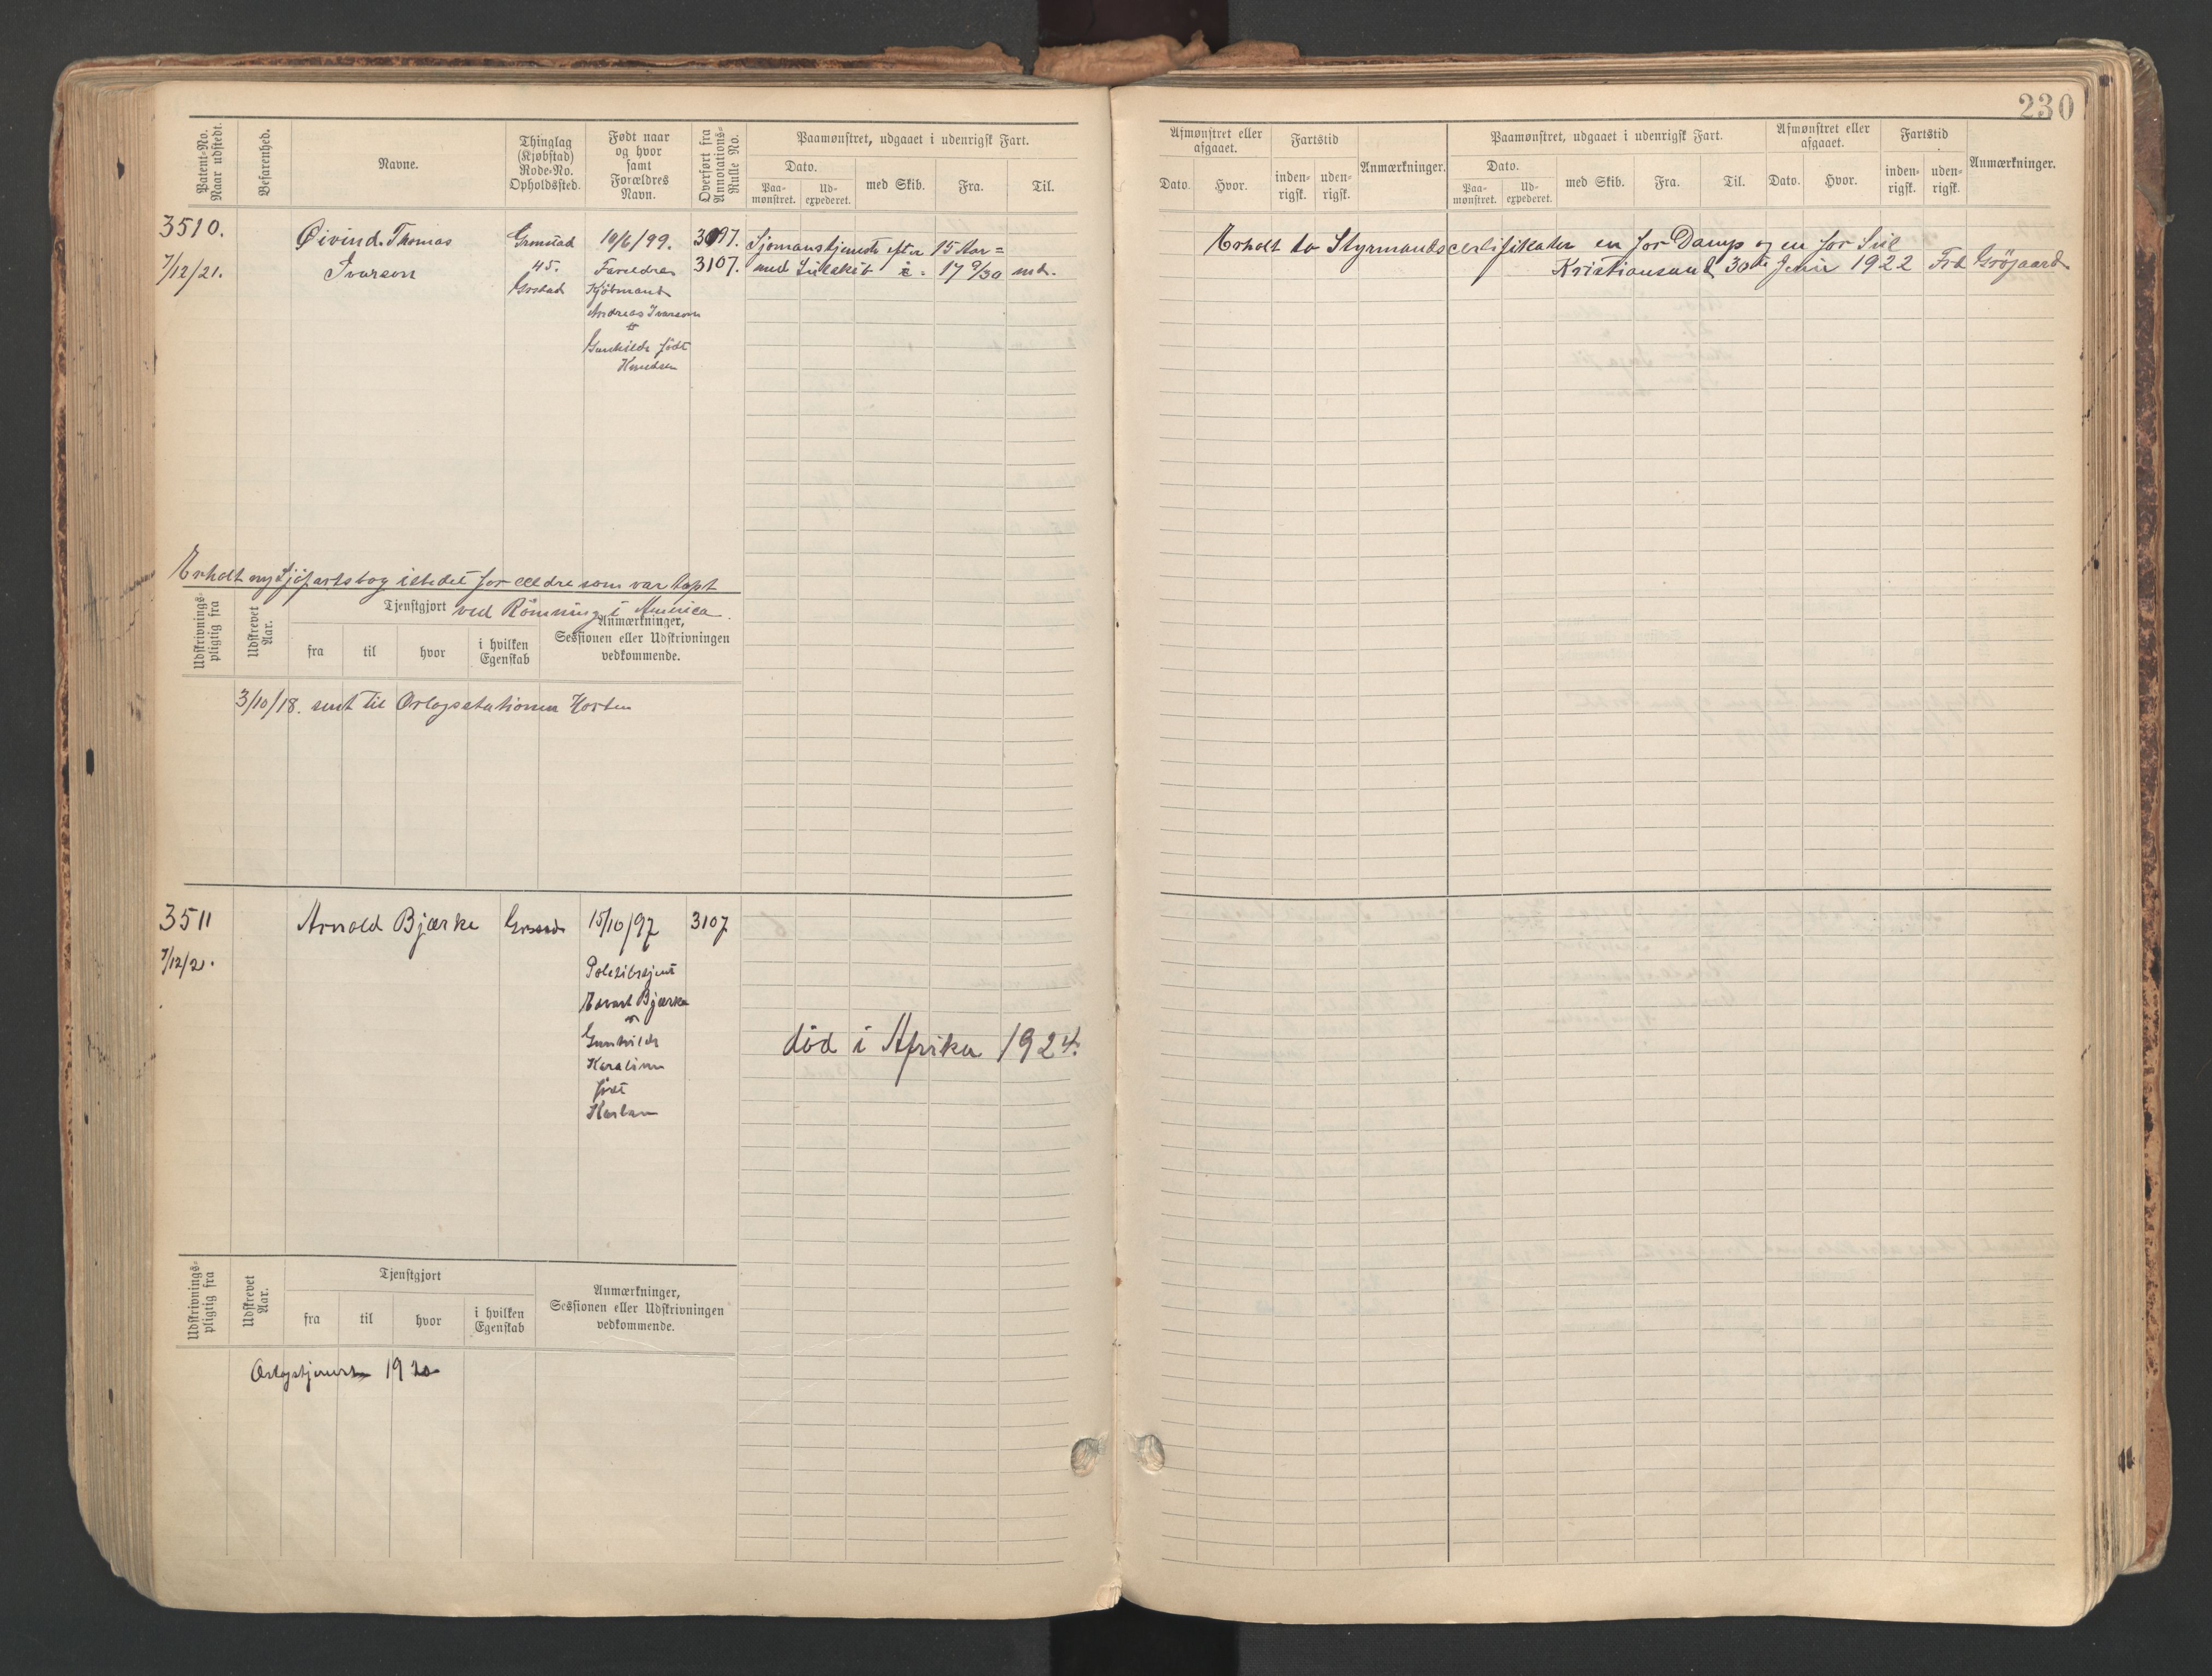 230
Patent-No. Naar udstedt.
Befarenhed.
Navne.
Thinglag (Kjøbstad) Rode-No. Opholdssted.
Født naar og hvor samt Forældres Navn.
Overført fra Annotations-Rulle No.
Paamønstret, udgaaet i udenrigsk Fart.
Dato.
Paa-mønstret.
Ud-expederet.
med Skib.
Fra.
Til.
Afmønstret eller afgaaet.
Dato.
Hvor.
Fartstid
inden-rigsk.
uden-rigsk.
Anmærkninger.
Paamønstret, udgaaet i udenrigsk Fart.
Dato.
Paa-mønstret.
Ud-expederet.
med Skib.
Fra.
Til.
Afmønstret eller afgaaet.
Dato.
Hvor.
Fartstid
inden-rigsk.
uden-rigsk.
Anmærkninger.
3510.
7/12/21.
Øivind Thomas
Ivarson
Grimstad
45.
10/6/99.
Forældre
Kjöbmand
Andreas Ivarson
Gunhilde födt
Knudsen
3097.
3107.
Sjömanstjeneste efter 15 Aar =
med Seilskib 17 9/30 md.
Erholt to Styrmandscertifikater en for Damp og en for Seil
Kristiansand 30te Juni 1922 Frd Grögaard
Erholt ny Sjöfartsbog istedet for ældre som var tapt
ved Römning i America.
Udskrivnings-pligtig fra
Udskrevet Aar.
Tjenstgjort
fra
til
hvor
i hvilken Egenskab
Anmærkninger, Sessionen eller Udskrivningen vedkommende.
3/10/18. sent til Orlogsstationen Horten
3511
7/12/21.
Arnold Bjærke
15/10/97
Politibetjent
Bjærke
Gunhilde
Karoline
födt
3107
död i Afrika 1924.
Udskrivnings-pligtig fra
Udskrevet Aar.
Tjenstgjort
fra
til
hvor
i hvilken Egenskab
Anmærkninger,
Sessionen eller Udskrivningen
vedkommende.
Orlogstjeneste 1920